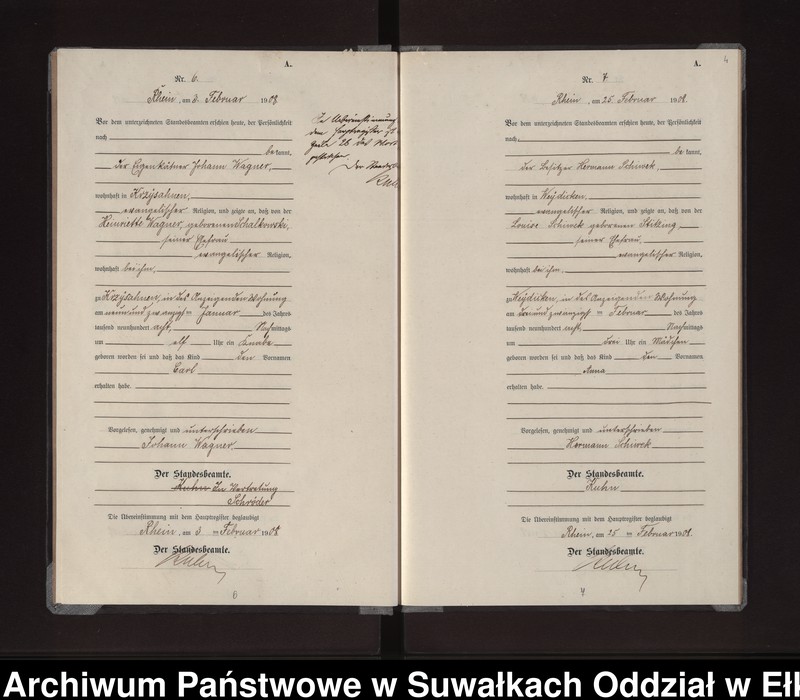 A.
Nr. 6.
Rhein, am 3. Februar 1908
Vor dem unterzeichneten Standesbeamten erschien heute, der Persönlichkeit
nach
bekannt,
der Eigenkätner Johann Wagner,
wohnhaft in Krzysahnen,
evangelischer Religion, und zeigte an, daß von der
Heinriette Wagner, geborenen Schalkowski,
seiner Ehefrau
evangelischer Religion,
wohnhaft bei ihm,
zu Krzysahnen, in des Anzeigenden Wohnung
am neunundzwanzigsten Januar des Jahres
tausend neunhundert acht, Nachmittags
um elf Uhr ein Knabe
geboren worden sei und daß das Kind den Vornamen
Carl
erhalten habe.
Vorgelesen, genehmigt und unterschrieben
Johann Wagner
Der Standesbeamte.
Kuhn In Vertretung
Schröder
Die Übereinstimmung mit dem Hauptregister beglaubigt
Rhein, am 3 ten Februar 1908
Der Standesbeamte.
Kuhn
6
In Uebereinstimmung
dem Hauptregister
28 des
Der
Kuhn
4
A.
Nr. 7
Rhein, am 25. Februar 1908.
Vor dem unterzeichneten Standesbeamten erschien heute, der Persönlichkeit
nach,
be kannt,
der Besitzer Hermann Schiwek,
wohnhaft in Weydicken,
evangelischer Religion, und zeigte an, daß von der
Louise Schiwek geborenen Stilling,
seiner Ehefrau,
evangelischer Religion,
wohnhaft bei ihm,
zu Weydicken, in des Anzeigenden Wohnung
am dreiundzwanzigsten Februar des Jahres
tausend neunhundert acht, Nachmittags
um drei Uhr ein Mädchen
geboren worden sei und daß das Kind den Vornamen
Anna
erhalten habe.
Vorgelesen, genehmigt und unterschrieben
Hermann Schiwek
Der Standesbeamte.
Kuhn
Die Übereinstimmung mit dem Hauptregister beglaubigt
Rhein, am 25 ten Februar 1908.
Der Standesbeamte.
Kuhn
7
Archiwum Państwowe w Suwałkach Oddział w Eł